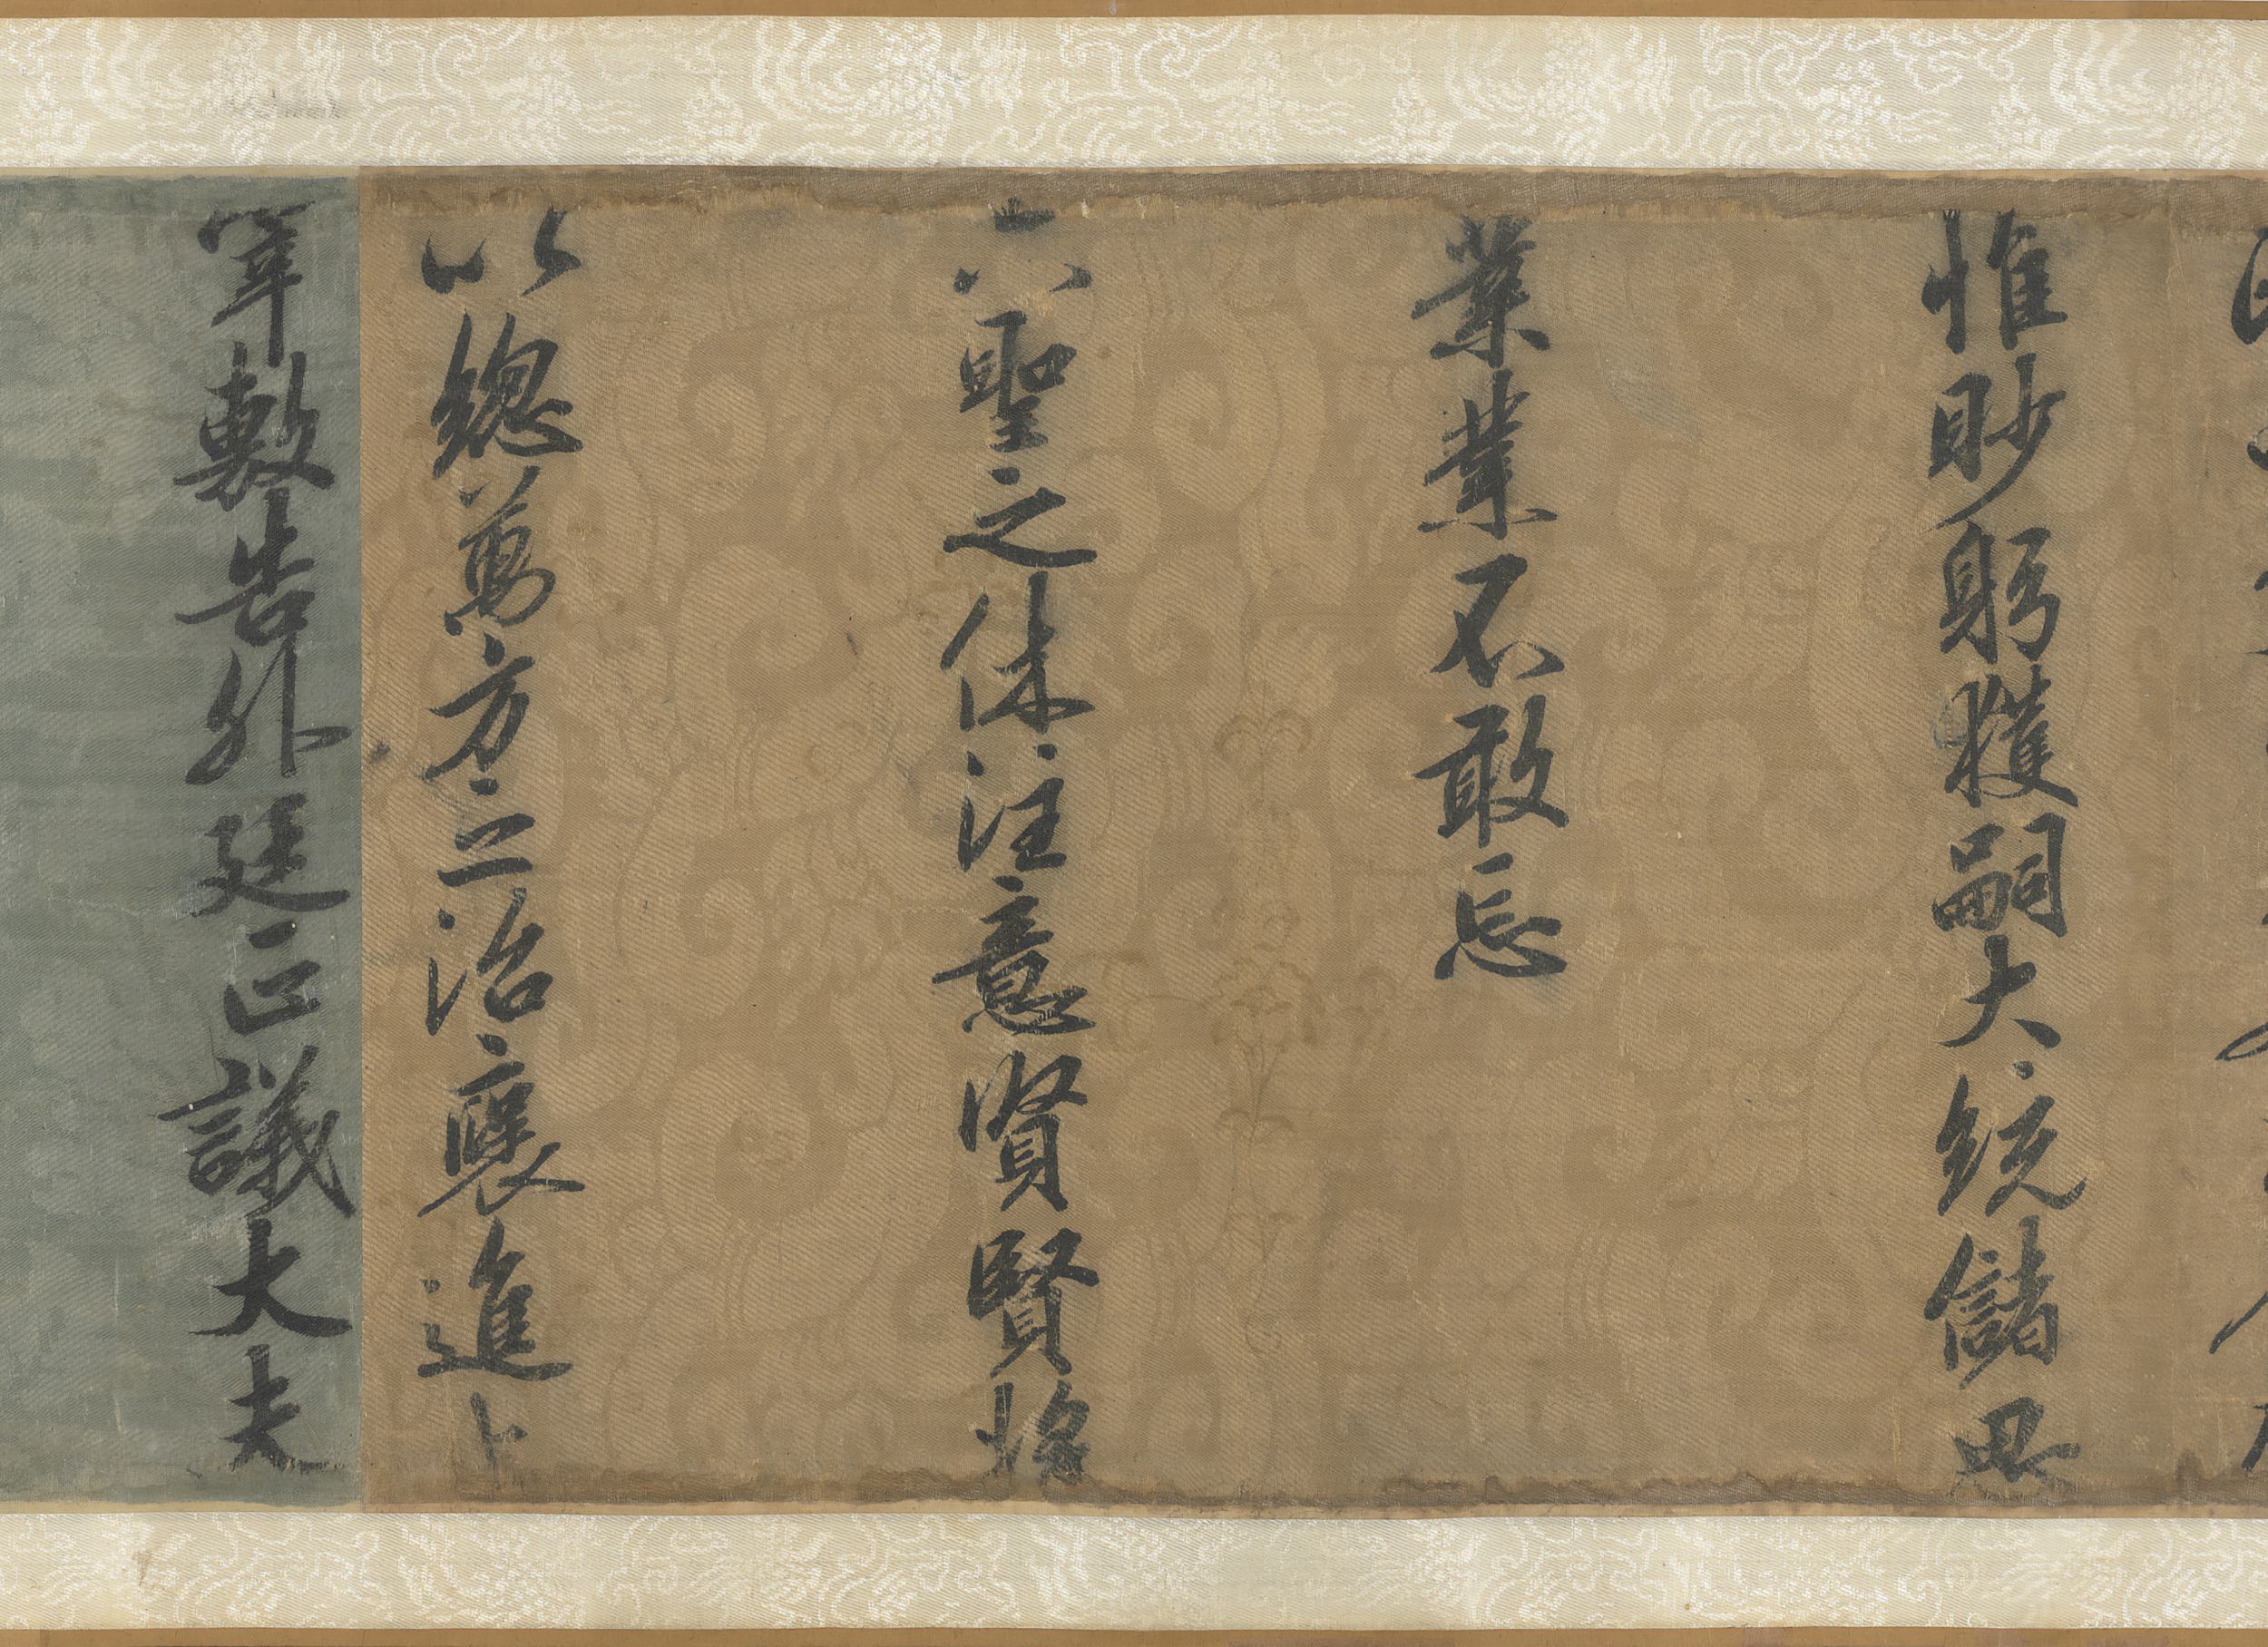 惟眇躬獲嗣大統儲思
業業不敢忘
六聖之休注意賢賢將
以總萬方之治襃進
宰敷告外廷正議大夫